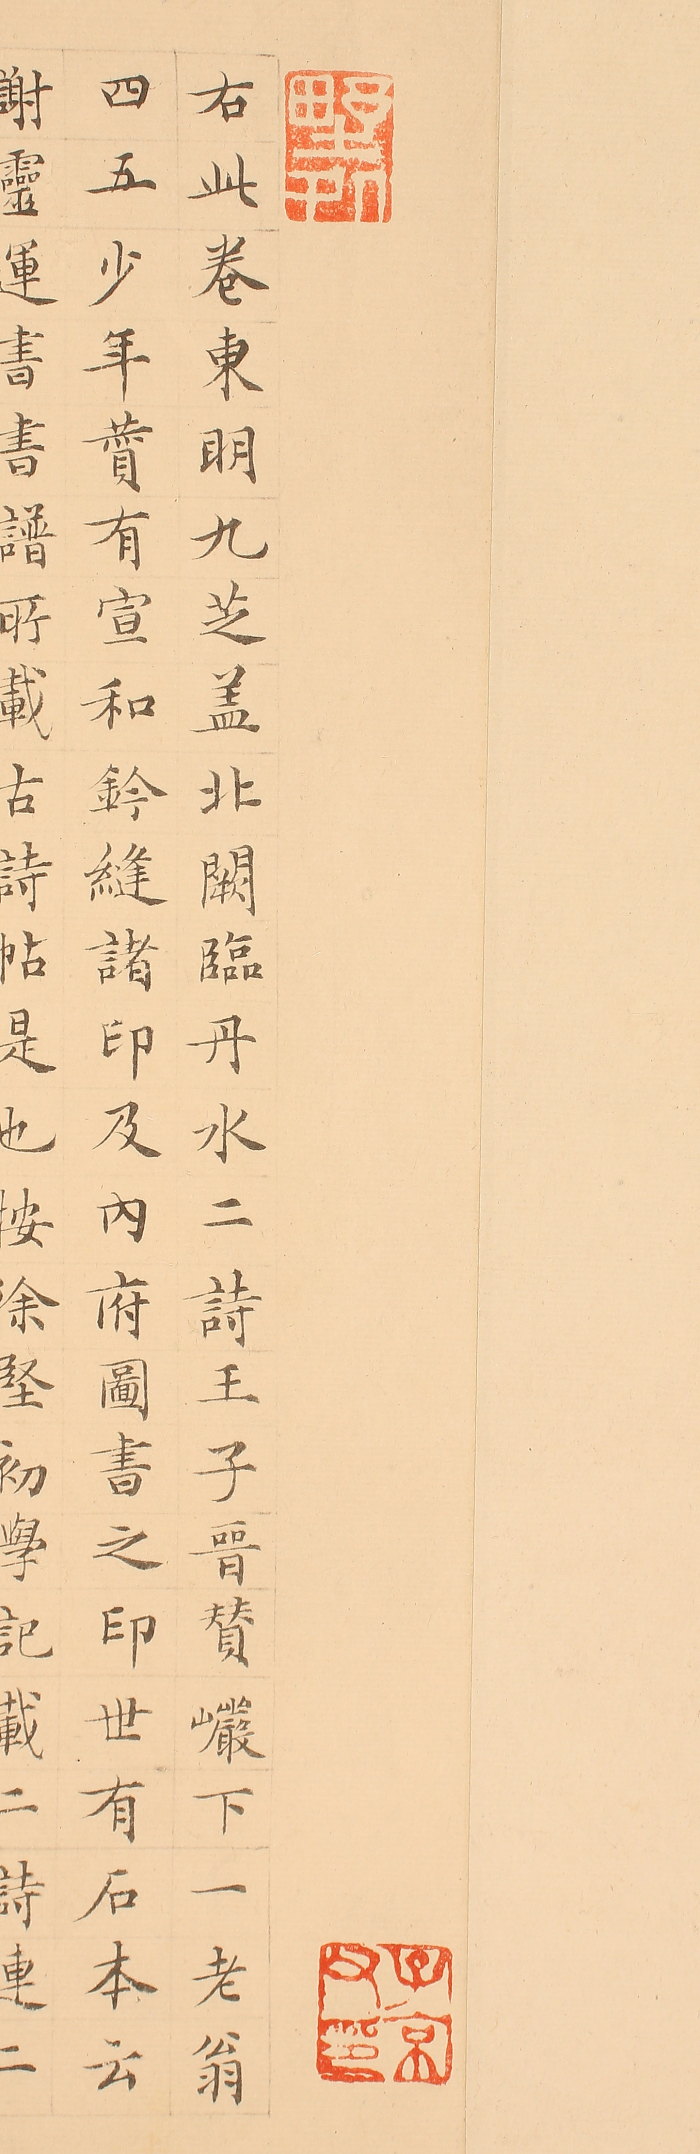 右此卷東明九芝盖北闕臨丹水二詩王子晉贊巖下一老翁
四五少年賛有宣和鈐縫諸印及內府圖書之印世有石本云
謝靈運書書譜所載古詩帖是也按徐堅初學記載二詩連二
子京
父印